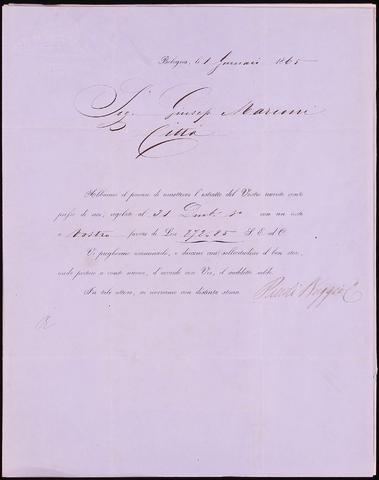 Bologna, li 1 Gennaio 1865
Sig. Giusep Marconi
Città
Abbiamo il piacere di rimettervi l'estratto del Vostro conto
presso di noi, regolato al 31 Dicbre con un resto
a Nostro favore di Lire 272.85 S. E. ed O.
Vi preghiamo esaminarlo, e darcene sottoscrizione il ben stare,
onde portare a conto nuovo, d'accordo con Voi, il suddetto
In tale attesa, vi riveriamo con distinta stima